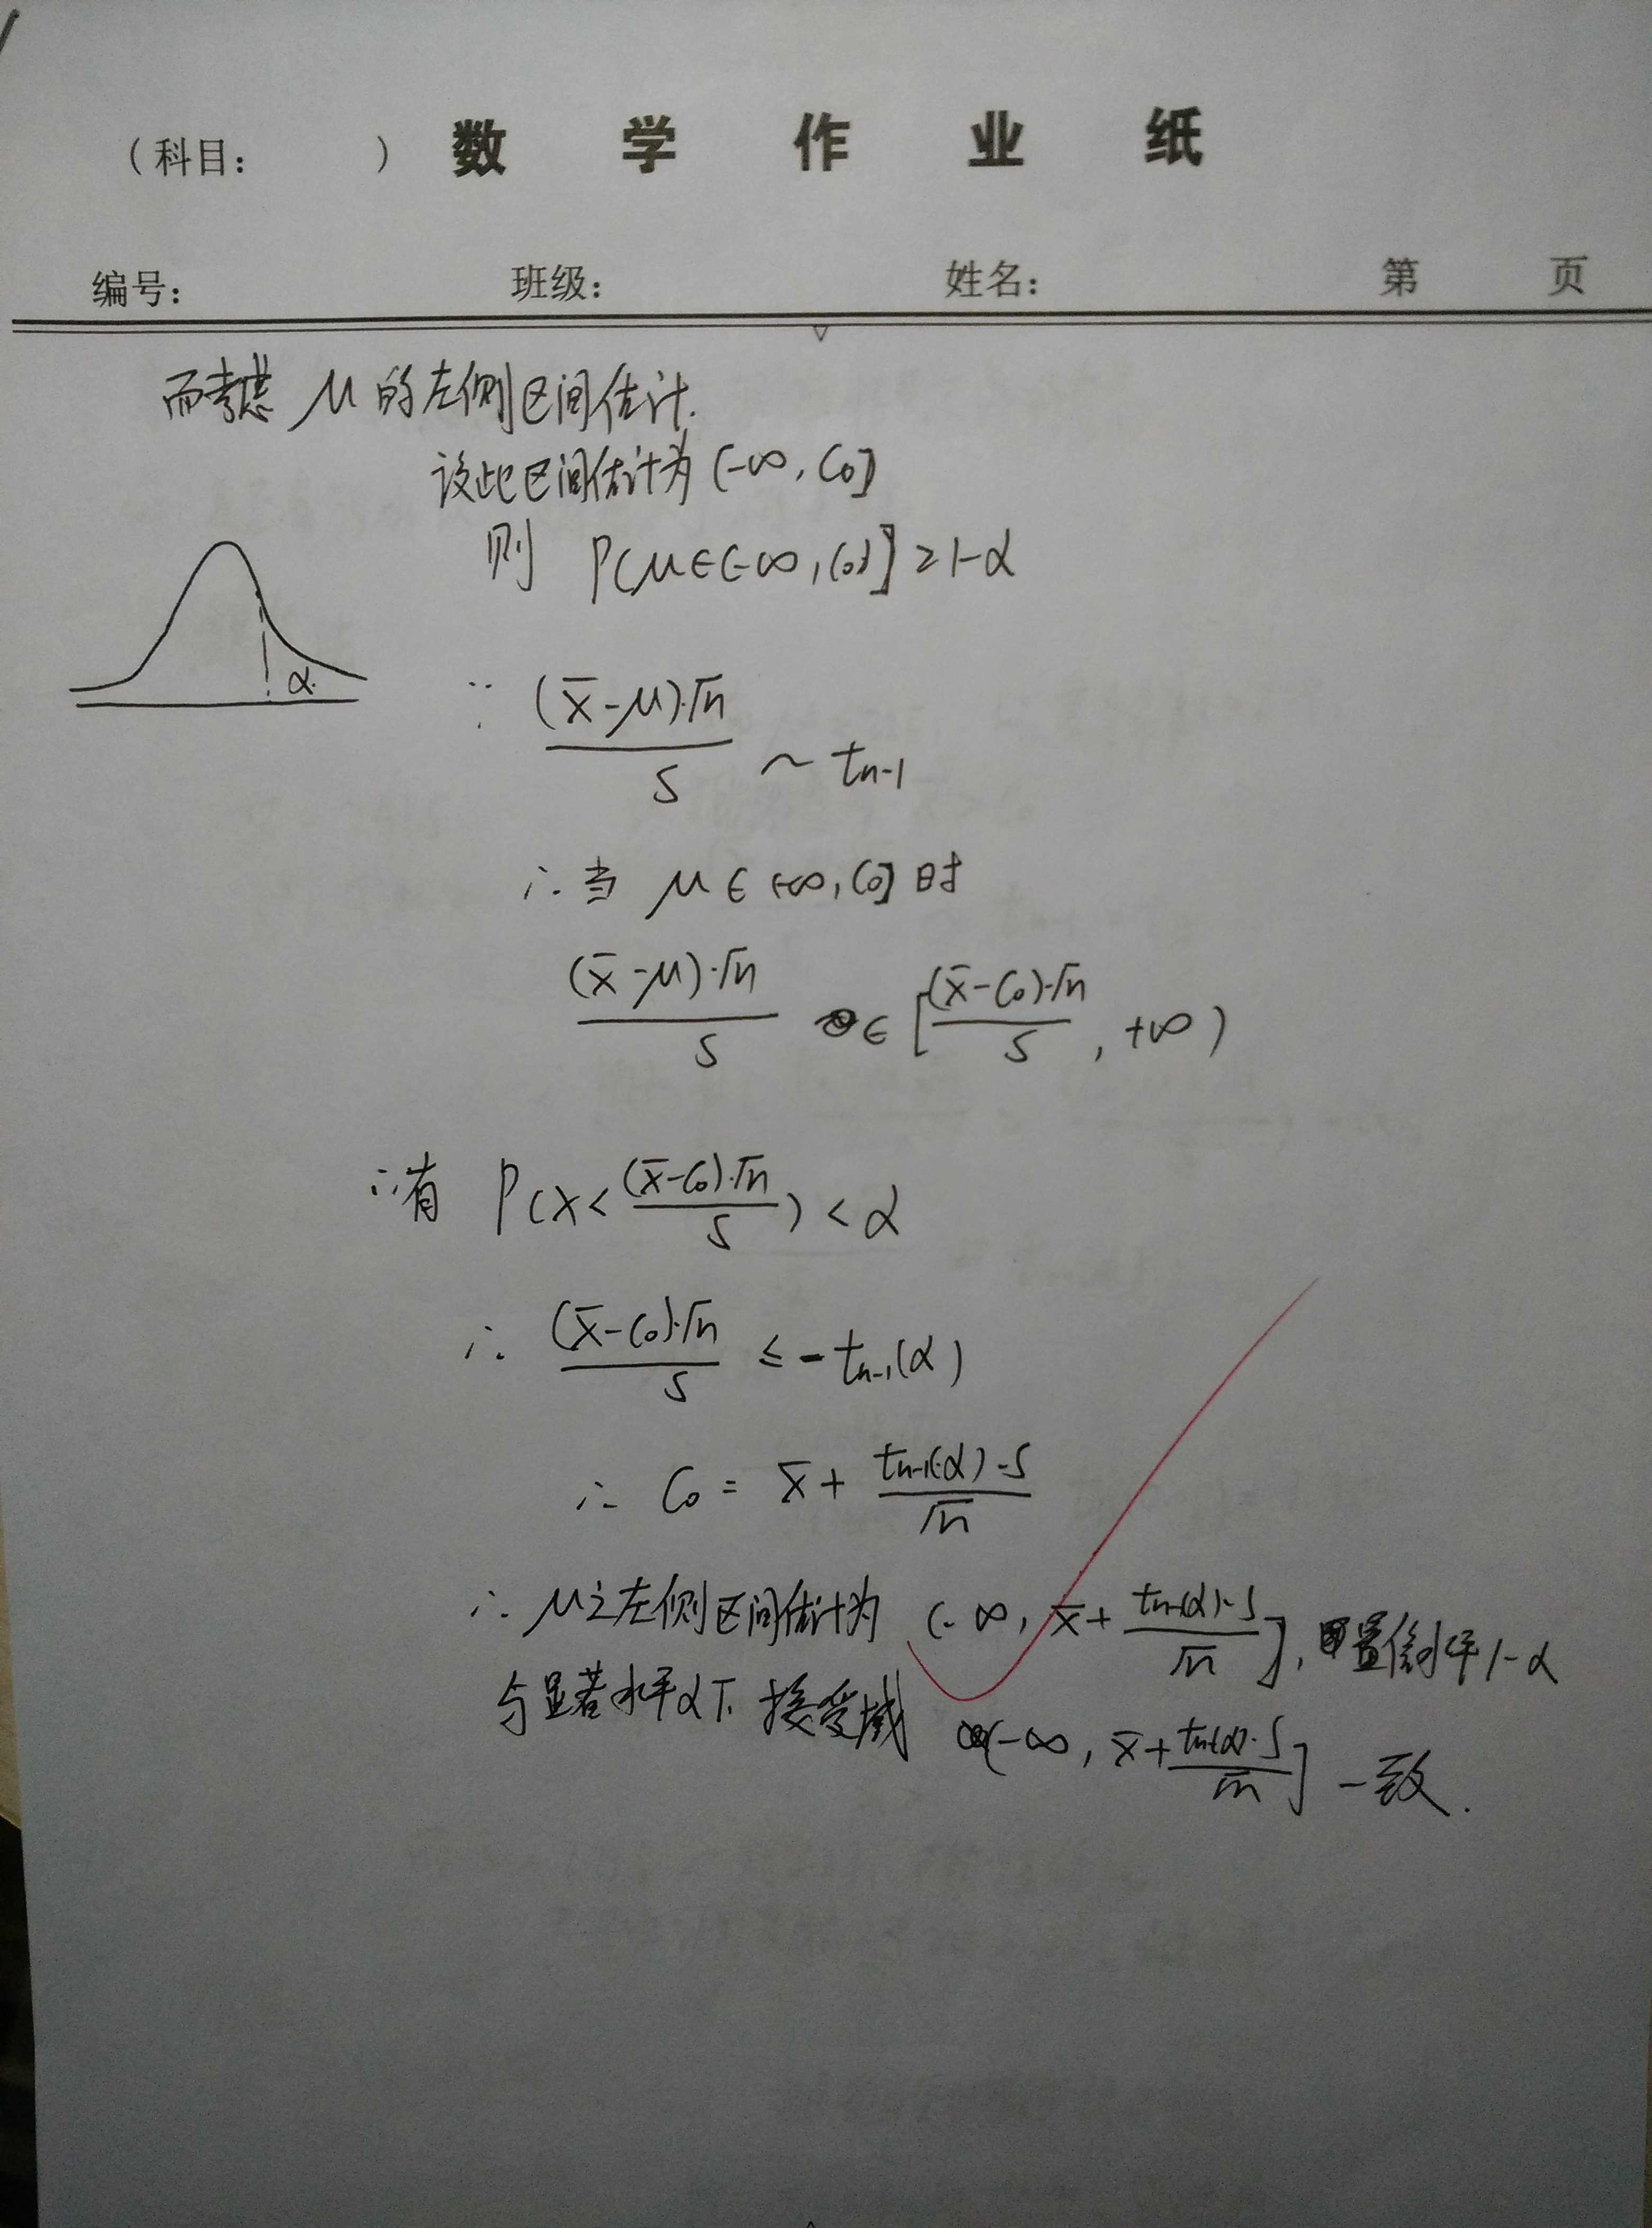 (科目: ) 数学作业纸
编号: 班级: 姓名: 第 页
而考虑 μ 的左侧区间估计.
设此区间估计为 (-∞, C₀]
则 P(μ∈(-∞, C₀]] ≥ 1-α
α.
∵ (x̄-μ)·√n / S ~ tn-1
∴ 当 μ ∈ (-∞, C₀] 时
(x̄-μ)·√n / S ∈ [(x̄-C₀)·√n / S, +∞)
∴ 有 P(X < (x̄-C₀)·√n / S) < α
∴ (x̄-C₀)·√n / S ≤ -tn-1(α)
∴ C₀ = x̄ + tn-1(α)·S / √n
∴ μ之左侧区间估计为 (-∞, x̄ + tn-1(α)·S / √n], 置信水平 1-α
与显著水平α下 接受域 (-∞, x̄ + tn-1(α)·S / √n] 一致.